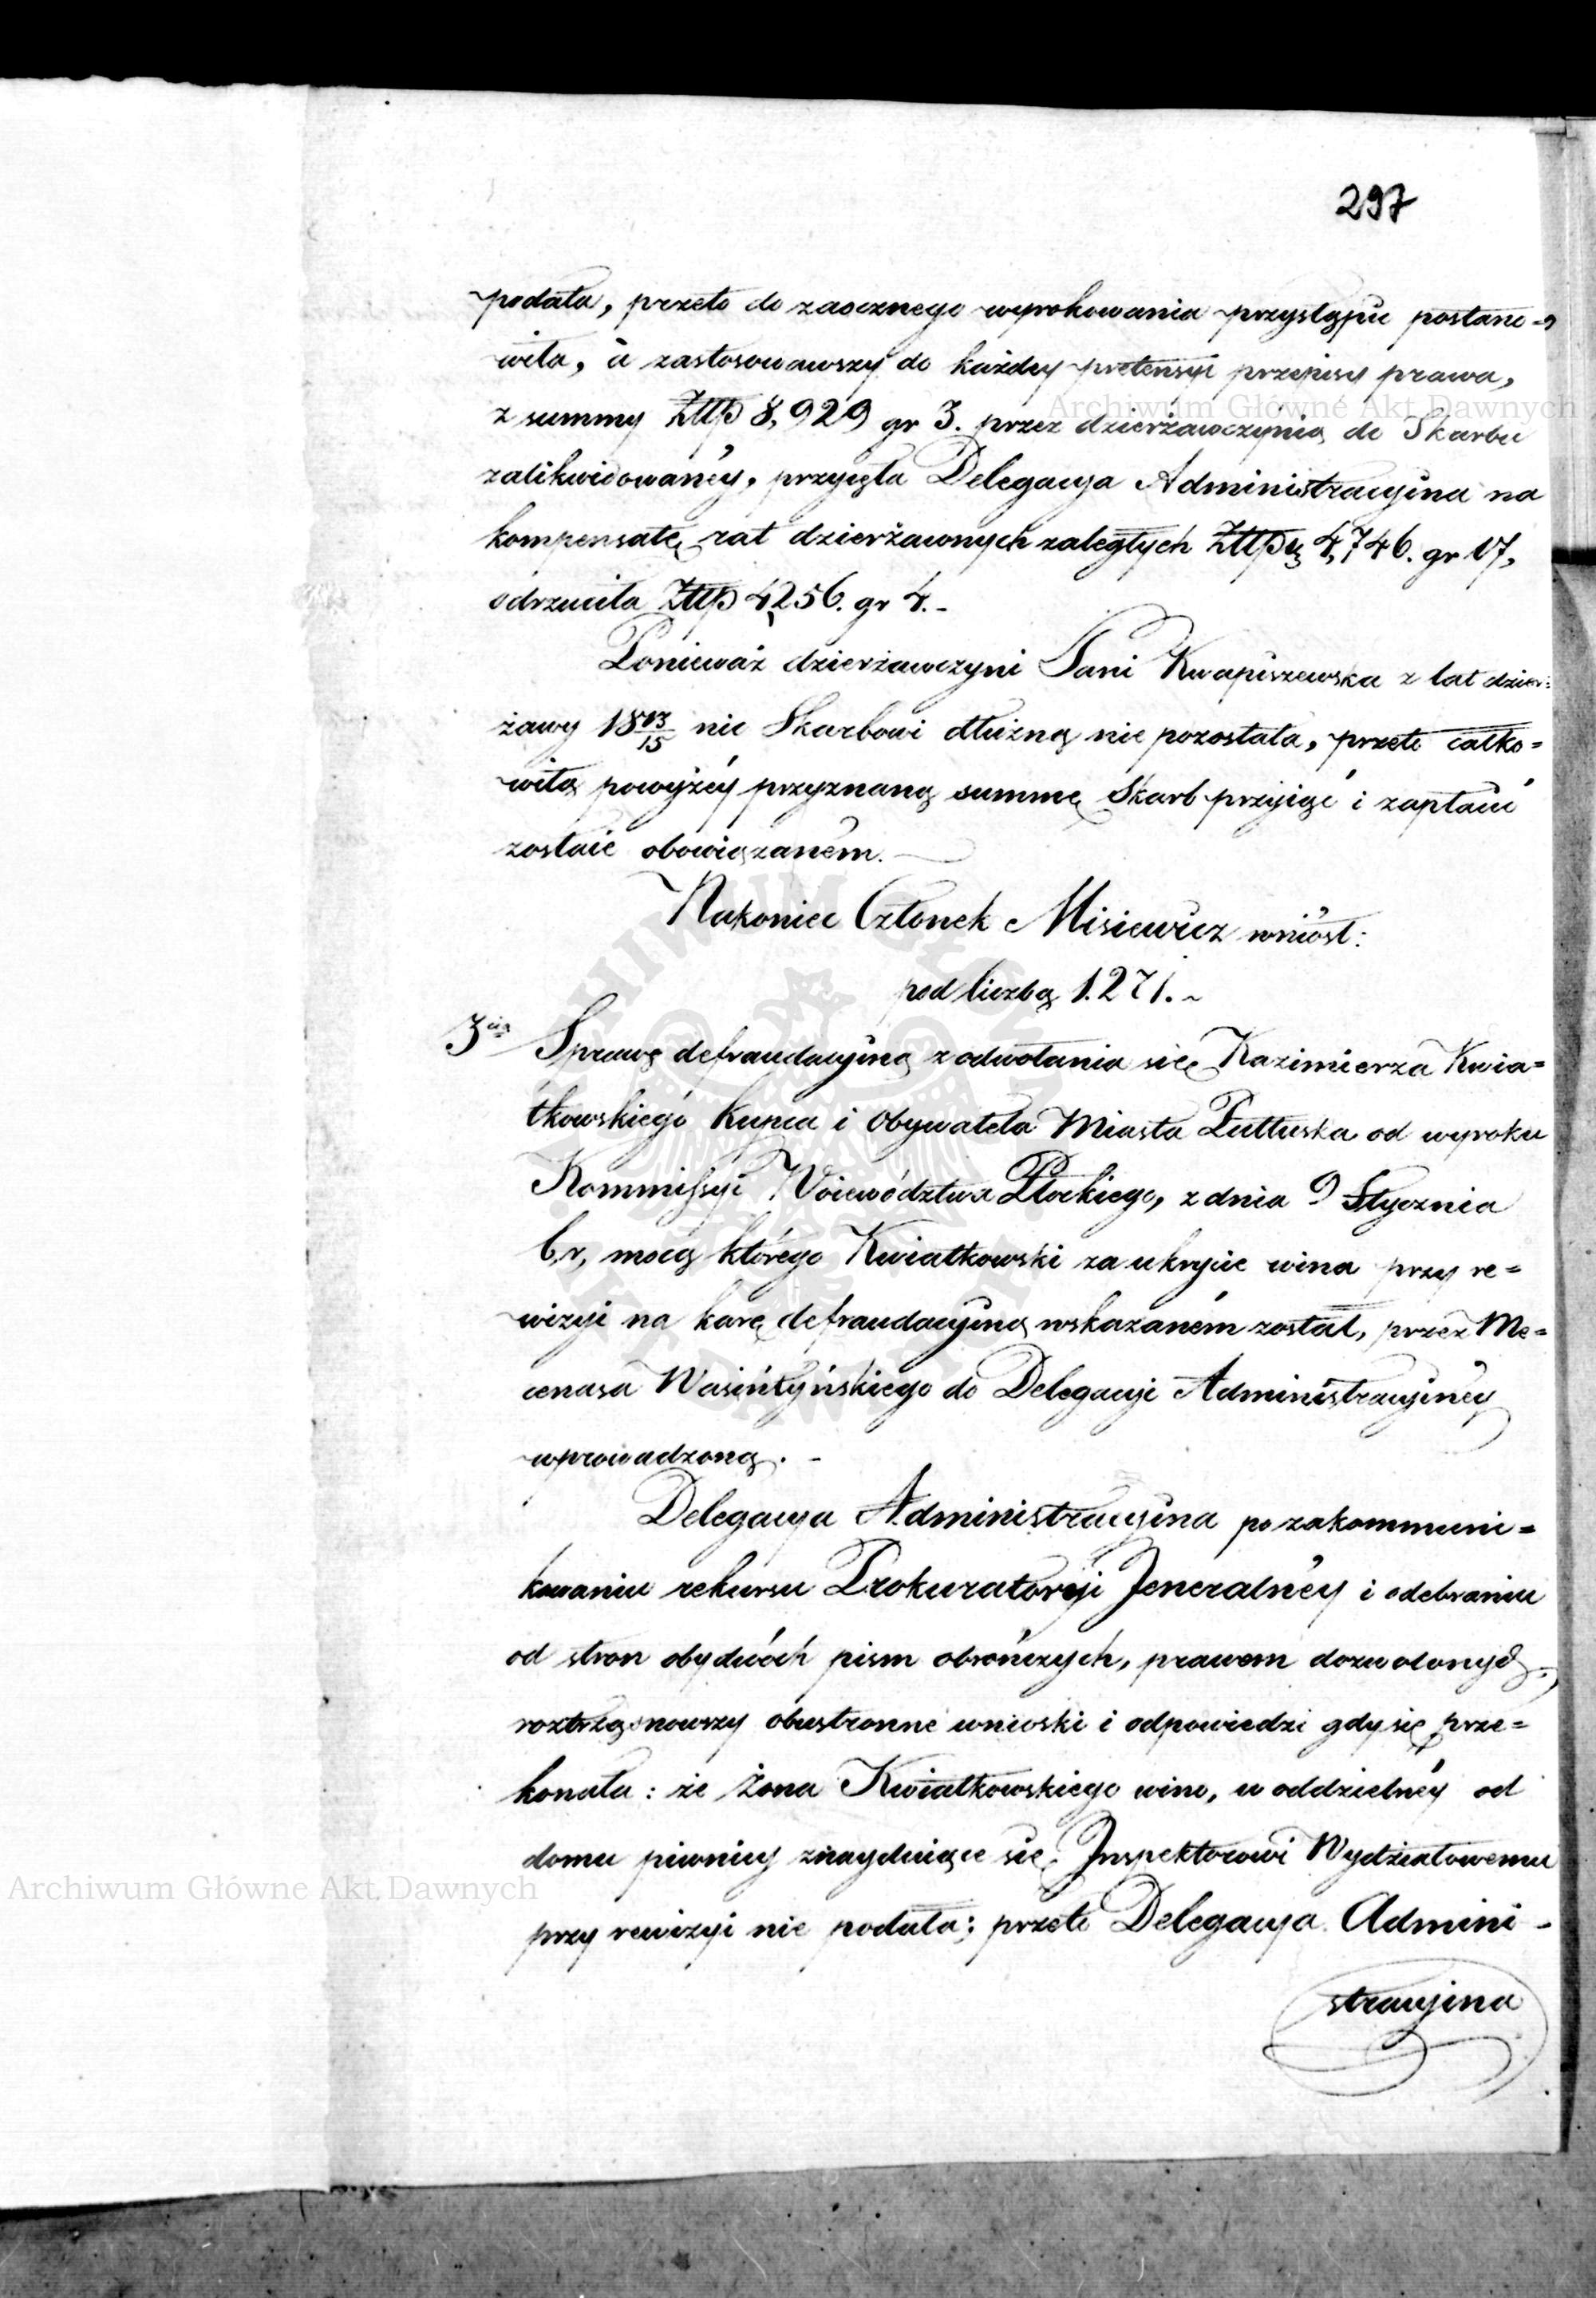 297
podała, przeto do zaocznego wyrokowania przystąpić postano=
wiła, a zastosowawszy do każdey pretensyi przepisy prawa,
z summy Złłp 8,929 gr 3. przez dzierżawczynią do Skarbu
zalikwidowanéy, przyięła Delegacya Administracyina na
kompensatę rat dzierżawnych zaległych Złłp 4,746. gr 17,
odrzuciła Złłp 4,256. gr 4.-
Ponieważ dzierżawczyni Pani Kwapiszewska z lat dzier=
żawy 1813/15 nic Skarbowi dłużną nie pozostała, przeto całko=
witą powyżéy przyznaną summę Skarb przyiąć i zapłacić
zostaie obowiązanem.
Nakoniec Członek Misiewicz wniósł:
pod liczbą 1.271.
3cią Sprawę defraudacyiną z odwołania się Kazimierza Kwia=
tkowskiego kupca i Obywatela Miasta Pułtuska od wyroku
Kommissyi Woiewództwa Płockiego, z dnia 9 Stycznia
b.r, mocą którego Kwiatkowski za ukrycie wina przy re=
wizyi na karę defraudacyiną wskazaném został, przez Me=
cenasa do Delegacyi Administracyinéy
wprowadzoną. -
Delegacya Administracyina po zakommuni=
kowaniu rekursu Prokuratoryi Jeneralnéy i odebraniu
od stron obydwóch pism obrończych, prawem dozwolonych,
roztrząsnowszy obustronne wnioski i odpowiedzi gdy się prze=
konała: że żona Kwiatkowskiego wino, w oddzielnéy od
domu piwnicy znayduiące się, Inspektorowi Wydziałowemu
przy rewizyi nie podała; przeto Delegacya Admini-
stracyina
Archiwum Główne Akt Dawnych
Archiwum Główne Akt Dawnych